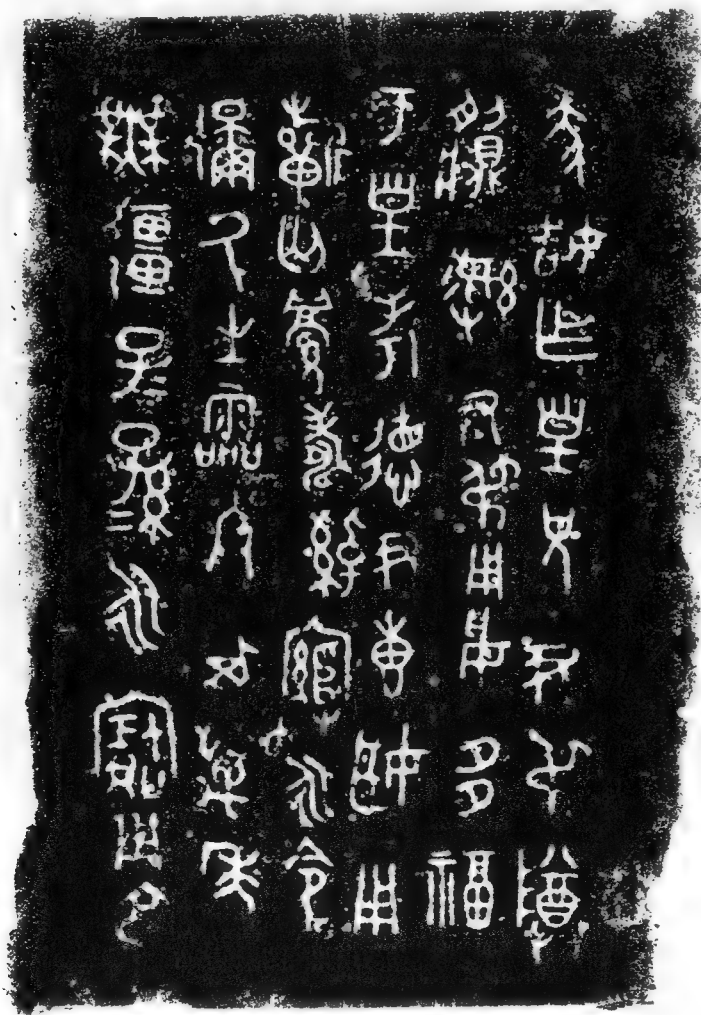 蔡姞乍皇兄尹弔尊
𩰫彝尹弔用妥多福
于皇考德尹叀姬用
𣄨匄眉壽綽綰永令
彌氒生霝冬其萬年
無彊子子孫孫永寶用享